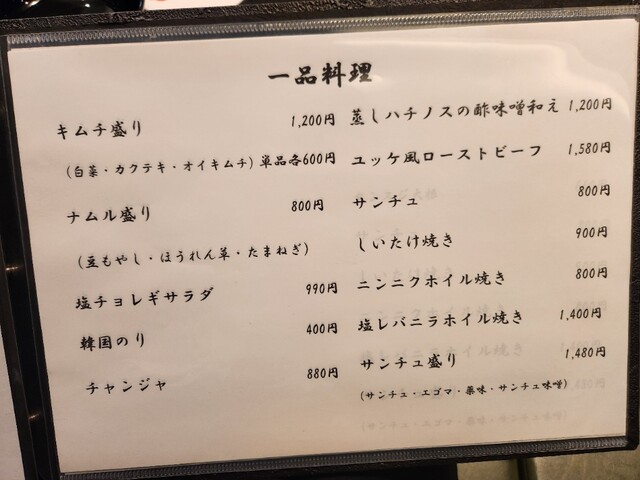 一品料理
キムチ盛り 1,200円
(白菜・カクテキ・オイキムチ) 単品各600円
ナムル盛り 800円
(豆もやし・ほうれん草・たまねぎ)
塩チョレギサラダ 990円
韓国のり 400円
チャンジャ 880円
蒸しハチノスの酢味噌和え 1,200円
ユッケ風ローストビーフ 1,580円
サンチュ 800円
しいたけ焼き 900円
ニンニクホイル焼き 800円
塩レバニラホイル焼き 1,400円
サンチュ盛り 1,480円
(サンチュ・エゴマ・薬味・サンチュ味噌)